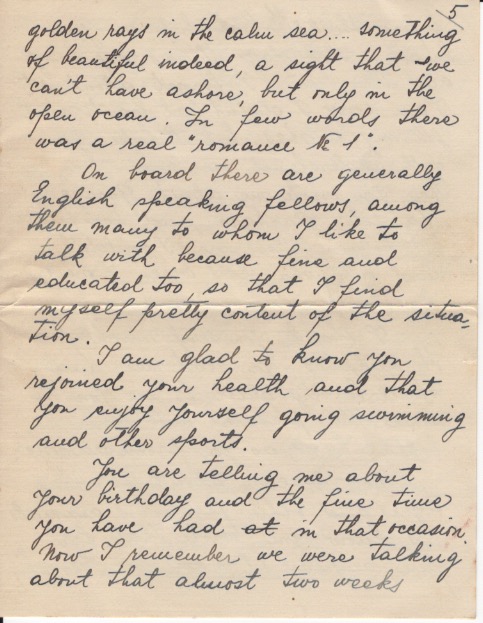 5
golden rays in the calm sea.... something
of beautiful indeed, a sight that we
can't have ashore, but only in the
open ocean. In few words there
was a real "romance № 1".
On board there are generally
English speaking fellows, among
them many to whom I like to
talk with because fine and
educated too, so that I find
myself pretty content of the situa=
tion.
I am glad to know you
rejoined your health and that
you enjoy yourself going swimming
and other sports.
You are telling me about
your birthday and the fine time
you have had at in that occasion.
Now I remember we were talking
about that almost two weeks